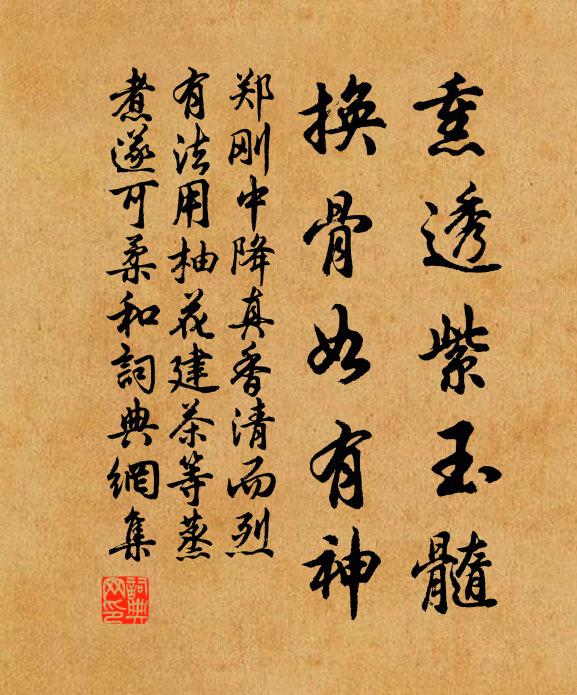 熏透紫玉髓
换骨如有神
郑刚中降真香清而烈
有法用柚花建茶等蒸
煮遂可柔和词典網集
詞典
网印